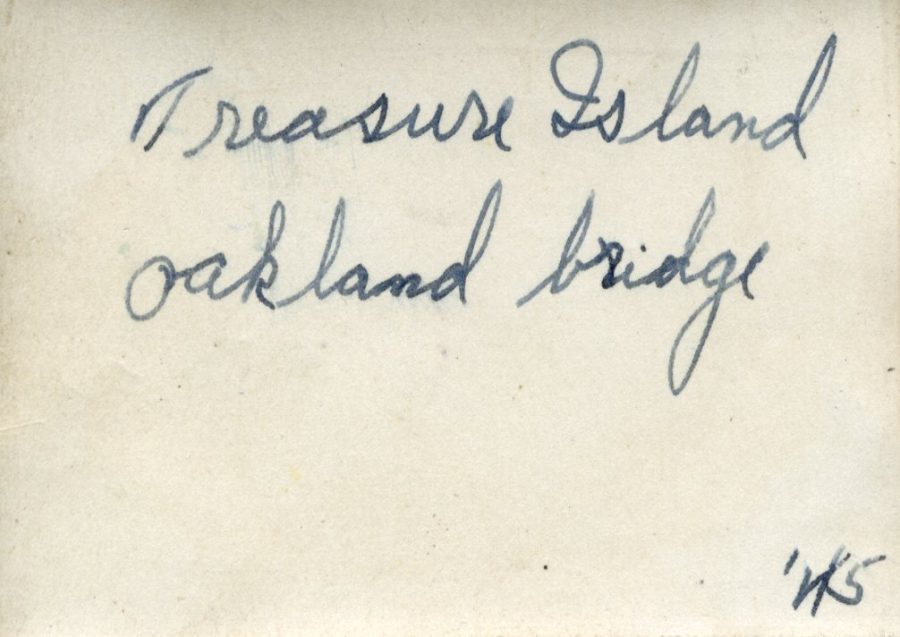 Treasure Island
oakland bridge
'45